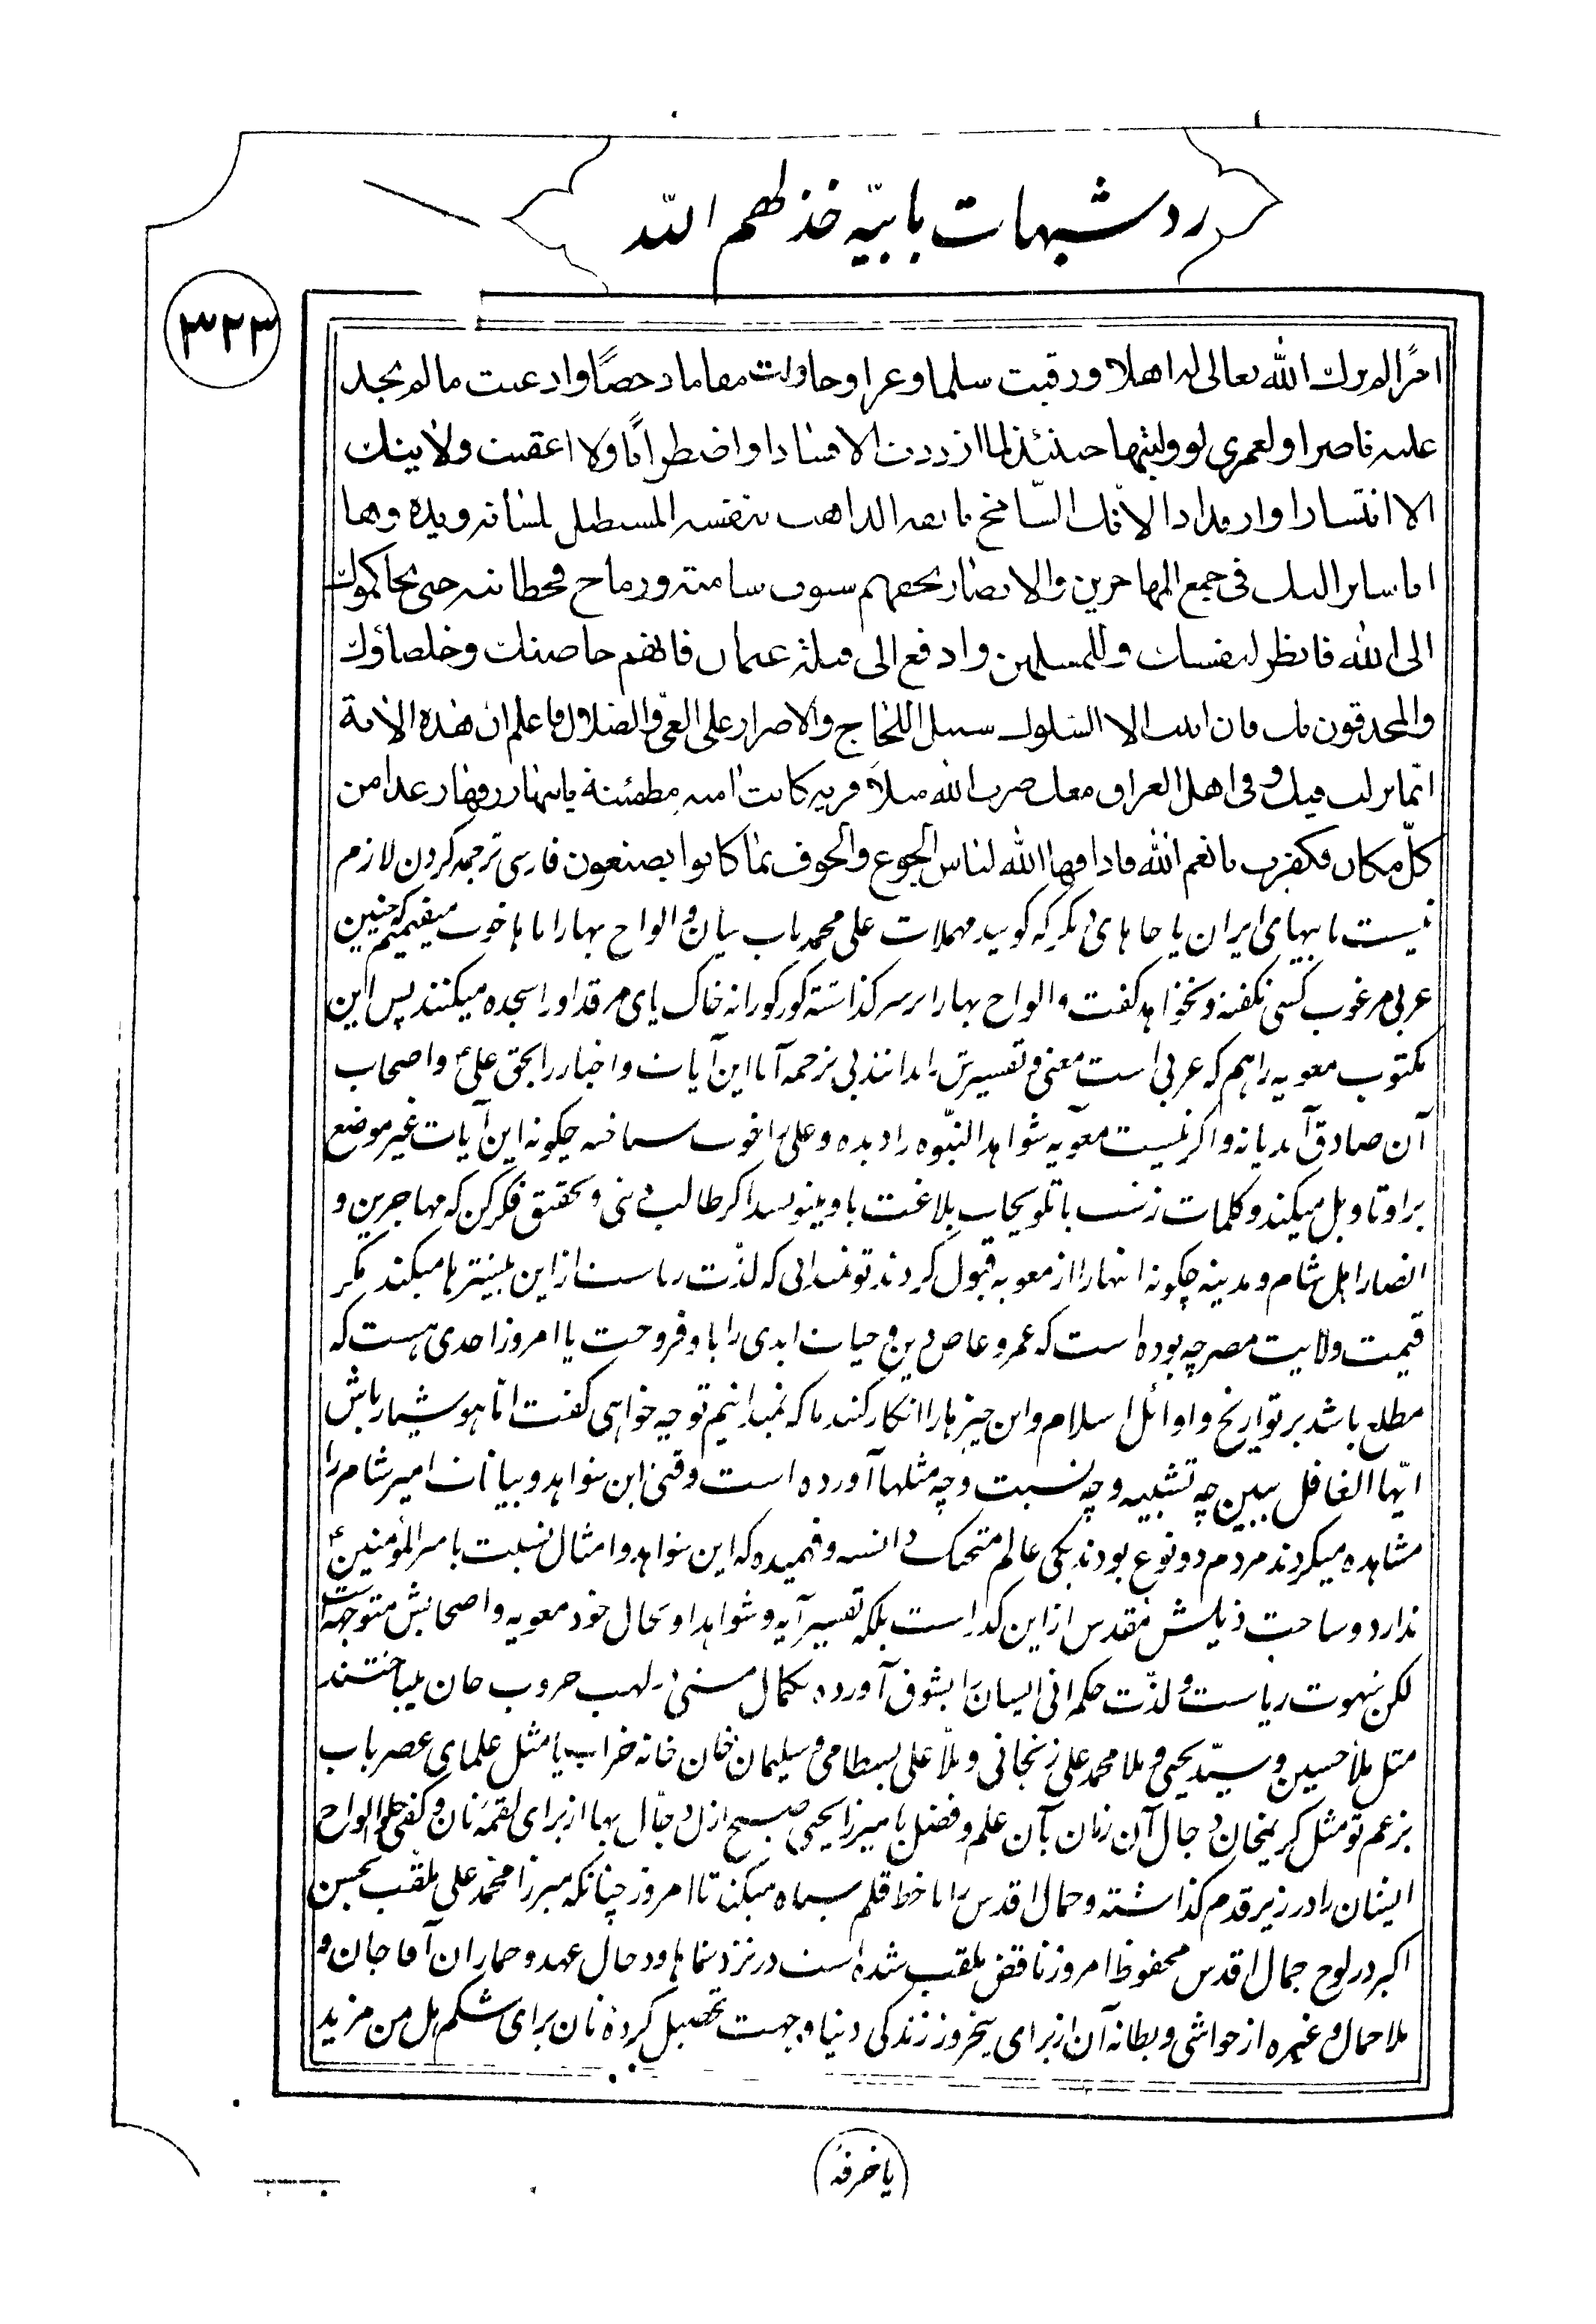 رد شبهات بابیّه خذلهم الله
۳۲۳
امرًا لم یرك الله تعالی له اهلا و رقیت سلما وعرا و حاولت مقاما دحضًا و ادعیت ما لم تجد
علیه ناصرا و لعمری لو ولیتها حینئذ لما ازددت الا فسادا و اضطرابًا و لا اعقبت ولایتك
الا انتشارا و ارتدادا لانّك الشّامخ بانفه الذاهب بنفسه المستطیل بلسانه ویده وها
انا سایر الیك فی جمع المهاجرین والانصار تحفهم سیوف شامیة و رماح قحطانیه حتی یحاکموك
الی الله فانظر لنفسك وللمسلمین وادفع الی قتلة عثمان فانهم خاصتك وخلصاؤك
والمحدقون بك فان ابیت الا السلوك سبیل اللجاج والاصرار علی الغی والضلال فاعلم ان هذه الایة
انّما نزلت فیك و فی اهل العراق معك ضرب الله مثلاً قریه کانت امنه مطمئنة یاتیها رزقها رغدا من
کلّ مکان فکفرت بانعم الله فاذاقها الله لباس الجوع والخوف بما کانوا یصنعون فارسی ترجمه کردن لازم
نیست بابیهای ایران یا جاهای دیگر که گویند مهملات علی محمد باب بیان و الواح بها را ماها خوب میفهمیم که چنین
عربی مرغوب کسی نگفته و نخواهد گفت و الواح بها را بر سر گذاشته کورکورانه خاک پای مرقد او را سجده میکنند پس این
مکتوب معویه را هم که عربی است معنی و تفسیرش را بدانند بی ترجمه آیا این آیات و اخبار را بحق علیؑ و اصحاب
آن صادق آمد یا نه و اگر نیست معویه شواهد النبّوه را دیده و علی را خوب شناخته چگونه این آیات غیر موضع
براو تاویل میکند و کلمات زشت با تلویحاب بلاغت باو بنویسد اگر طالب دینی و تحقیق فکر کن که مهاجرین و
انصار اهل شام و مدینه چگونه اینها را از معویه قبول کردند تو نمیدانی که لذّت ریاست از این بیشترها میکند مگر
قیمت ولایت مصر چه بوده است که عمرو عاص دین و حیات ابدی را باو فروخت یا امروز احدی هست که
مطلع باشد بر تواریخ و اوائل اسلام و این چیزها را انکار کند ما که نمیدانیم تو چه خواهی گفت امّا هوشیار باش
ایّها الغافل ببین چه تشبیه و چه نسبت و چه مثلها آورده است وقتی این شواهد و بیانات امیر شام را
مشاهده میکردند مردم دو نوع بودند یکی عالم متحک دانسته و فهمیده که این شواهد و امثال نسبت بامیر المؤمنینؑ
ندارد و ساحت ذیلش مقدس از این کدر است بلکه تفسیر آیه و شواهد او بحال خود معویه و اصحابش متوجه است
لکن شهوت ریاست و لذّت حکمرانی ایشان را بشوق آورده بکمال مستی در لهب حروب جان میباختند
مثل ملا حسین و سیّد یحیی و ملا محمد علی زنجانی و ملّا علی بسطامی و سلیمان خان خانه خراب یا مثل علمای عصر باب
بزعم تو مثل کریمخان دجال آن زمان بآن علم و فضل یا میرزا یحیی صبح ازل دجّال بها از برای لقمه نان و کفی حلوا الواح
ایشان را در زیر قدم گذاشته و جمال اقدس را با خط قلم سیاه میکند تا امروز چنانکه میرزا محمد علی ملقّب بغصن
اکبر در لوح جمال اقدس محفوظ امروز ناقض ملقب شده است در نزد شماها و دجال عهد و حماران آقا جان و
ملا جمال و غیره از حواشی و بطانه آن از برای پنجروز زندگی دنیا و جهت تحصیل گرده نان برای شکم هل من مزید
یا خرقه